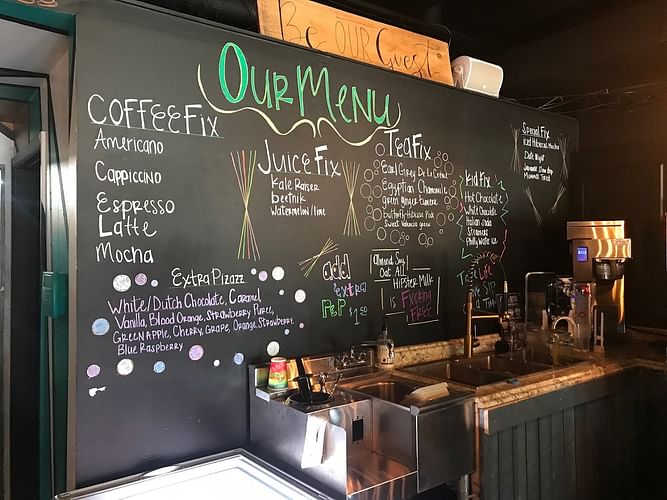 Be OUR Guest
OUR MENU
COFFEE FIX
Americano
Cappiccino
Espresso
Latte
Mocha
EXTRA Pizazz
White/Dutch Chocolate, Caramel
Vanilla, Blood Orange, Strawberry Puree,
GREEN APPLE, Cherry, Grape, Orange, Strawberry,
Blue Raspberry
JUICE FIX
Kale Raiser
beetnik
Watermelon/lime
add
extra
PEP $1.50
TEA FIX
Earl Grey De La Creme
Egyptian Chamomile
Green ginger tumeric
butterfly Hibiscus
Sweet
Almond, Soy,
Oat ALL
Hipster Milk
IS FXCKING
FREE
KID FIX
Hot Chocolate
White Chocolate
Italian Soda
Steamers
Philly Water Ice
LIFE
SIP
Special Fix
Iced Hibiscus Mocha
Date Night